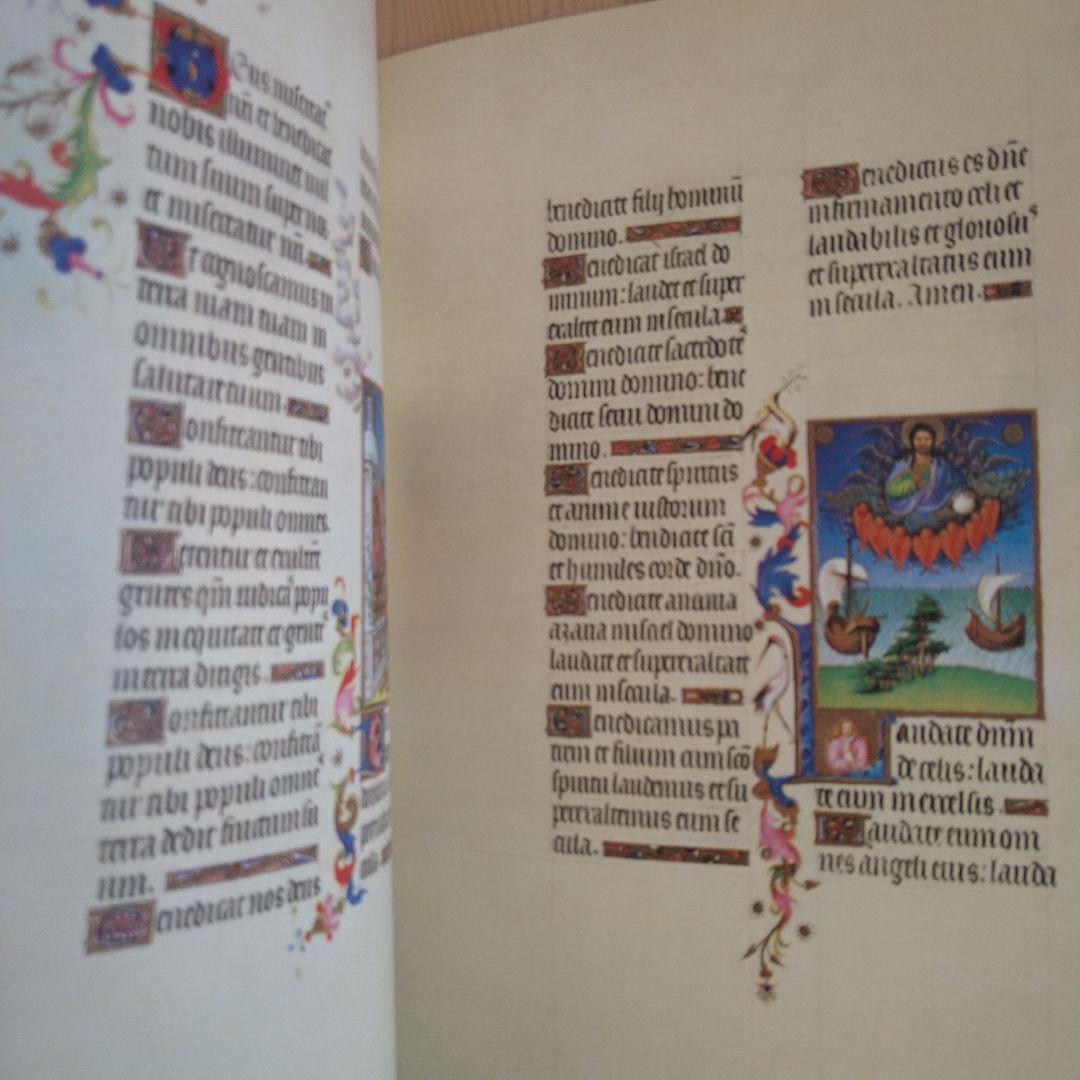 Deus miserat̄
nr̄i et benedicat
nobis illuminet uul
tum suum super nos
et misereatur nr̄i.
Ut cognoscamus in
terra uiam tuam in
omnibus gentibus
salutare tuum.
Confiteantur tibi
populi deus: confitean
tur tibi populi omnes.
Letentur et exultēt
gentes qm̄ iudicas popu
los in equitate et gentes
in terra dirigis.
Confiteantur tibi
populi deus: confiteā
tur tibi populi omnes
terra dedit fructum su
um.
Benedicat nos deus
benedicite filij hominū
domino.
Benedicat israel do
minum: laudet et super
exaltet eum in secula.
Benedicite sacerdotes
domini domino: bene
dicite serui domini do
mino.
Benedicite spiritus
et anime iustorum
domino: bendicite sc̄i
et humiles corde dn̄o.
Benedicite anania
azaria misael domino
laudate et superexaltate
eum in secula.
Benedicamus pa
trem et filium cum sc̄o
spiritu laudemus et su
perexaltemus eum in se
cula.
Benedictus es dn̄e
in firmamento celi et
laudabilis et gloriosus
et superexaltatus eum
in secula. Amen.
Laudate dn̄m
de celis: lauda
te eum in excelsis.
Laudate eum om
nes angeli eius: lauda